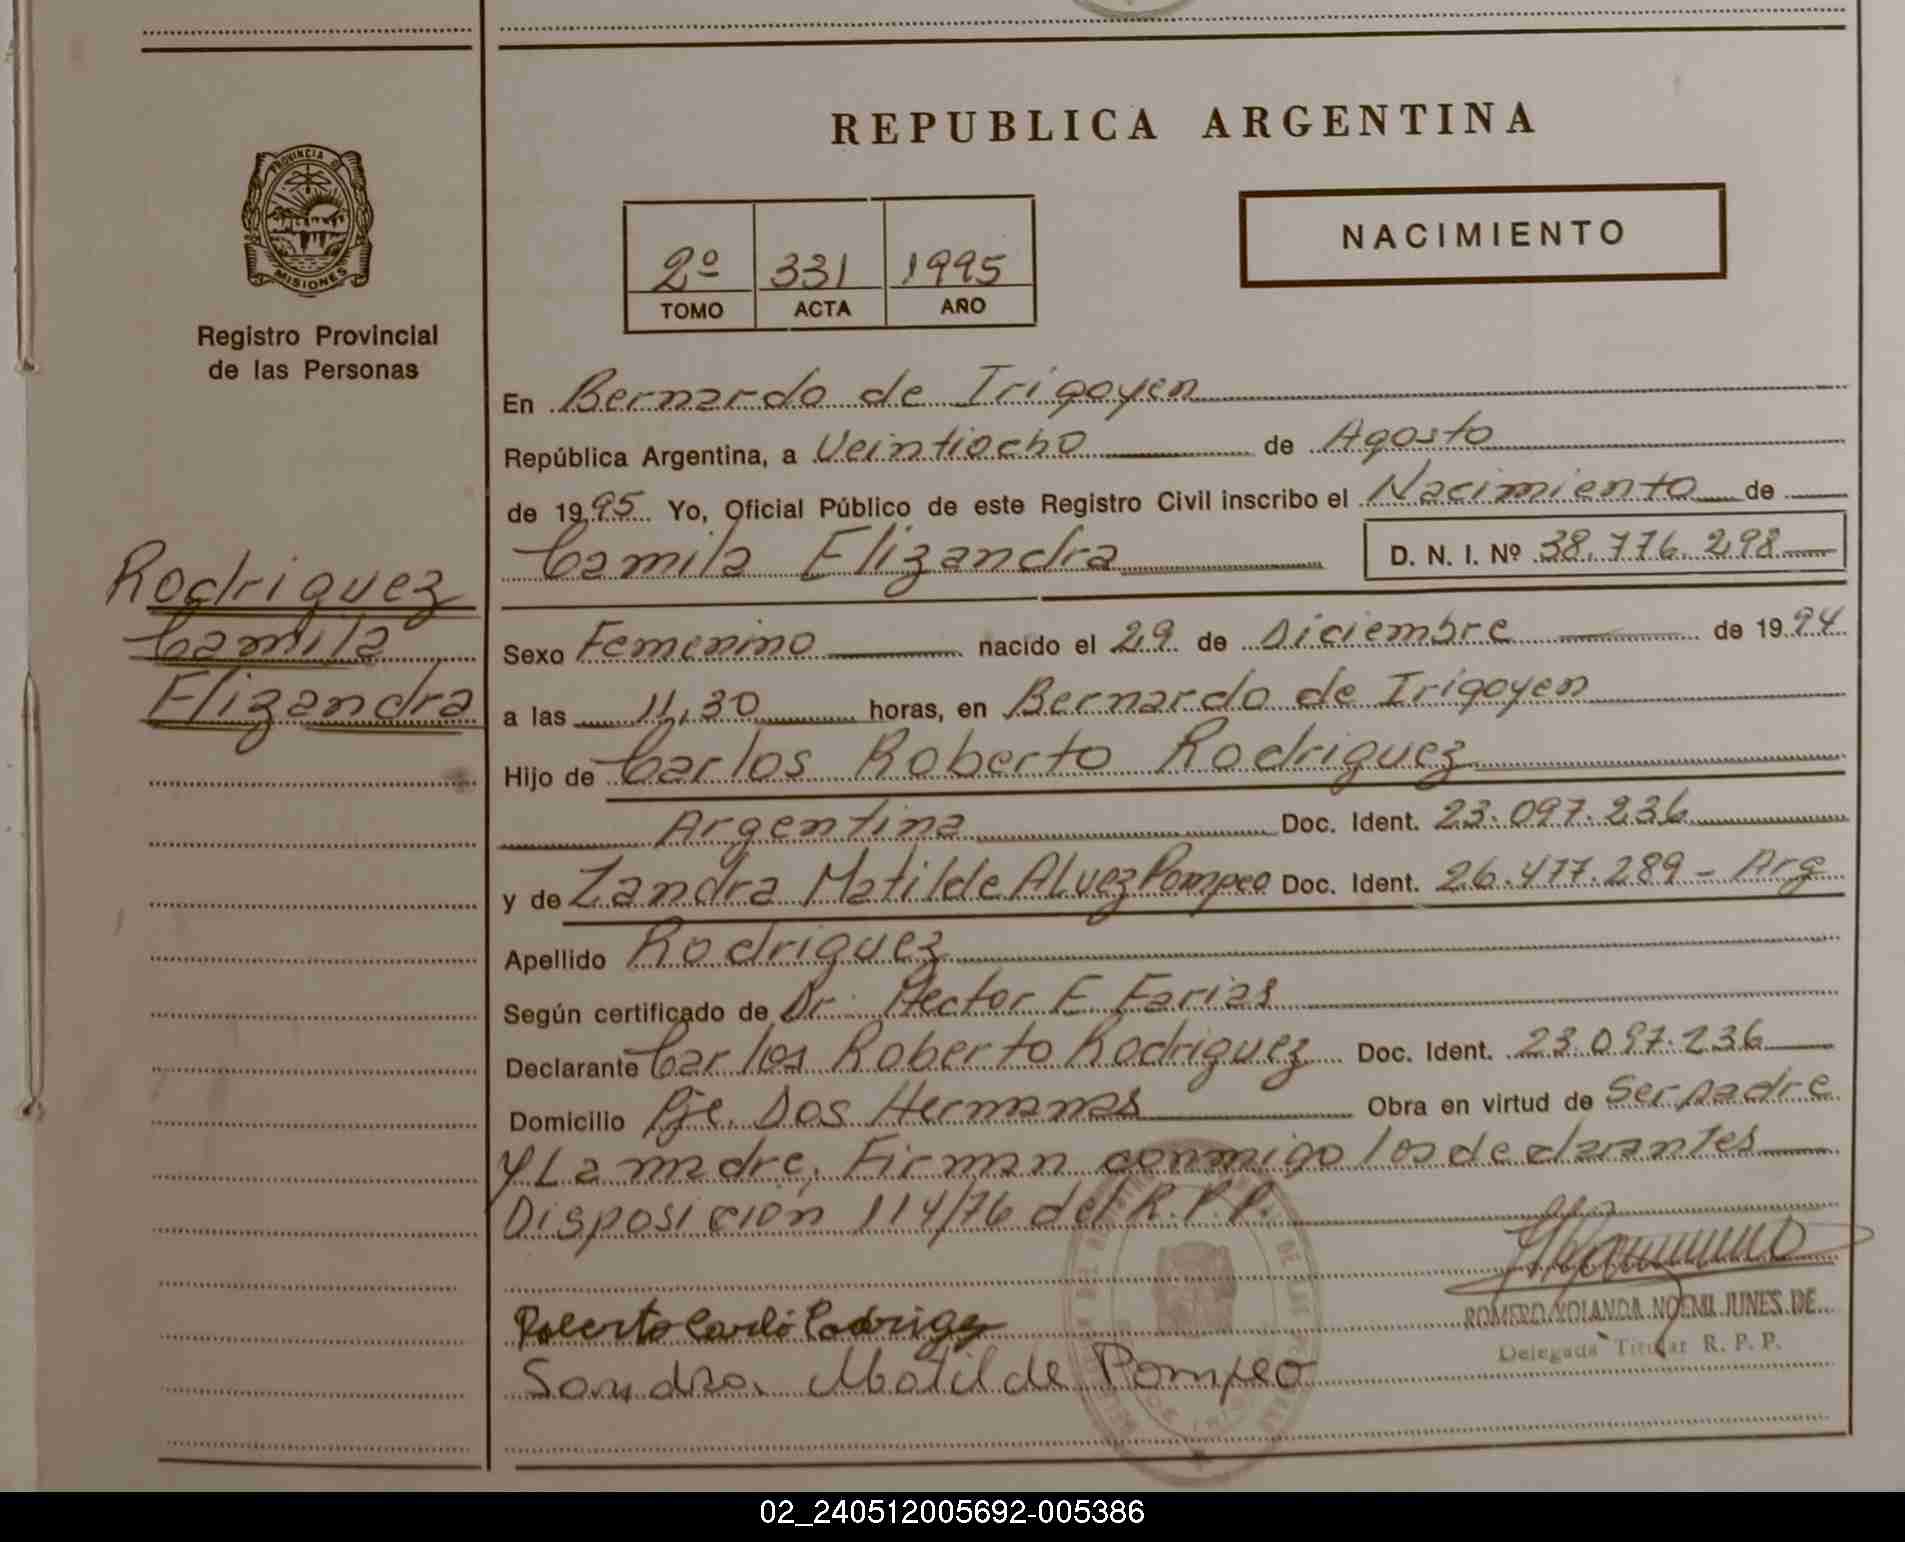 REPUBLICA ARGENTINA
PROVINCIA DE
MISIONES
Registro Provincial
de las Personas
2º 331 1995
TOMO ACTA AÑO
NACIMIENTO
Rodriguez
Camila
Elizandra
En Bernardo de Irigoyen
República Argentina, a Veintiocho de Agosto
de 1995 Yo, Oficial Público de este Registro Civil inscribo el Nacimiento de
Camila Elizandra D. N. I. Nº 38.776.298
Sexo Femenino nacido el 29 de Diciembre de 1994
a las 11,30 horas, en Bernardo de Irigoyen
Hijo de Carlos Roberto Rodriguez
Argentina Doc. Ident. 23.097.236
y de Zandra Matilde Alvez Pompeo Doc. Ident. 26.477.289 - Arg
Apellido Rodriguez
Según certificado de Dr. Hector E. Farias
Declarante Carlos Roberto Rodriguez Doc. Ident. 23.097.236
Domicilio Pje. Dos Hermanas Obra en virtud de Ser padre
y La madre, Firman conmigo los declarantes
Disposición 114/76 del R.P.P.
Roberto Carlo Rodrigez
Sandra Matilde Pompeo
ROMERO YOLANDA NOEMI JUNES DE
Delegada Titular R. P. P.
02_240512005692-005386